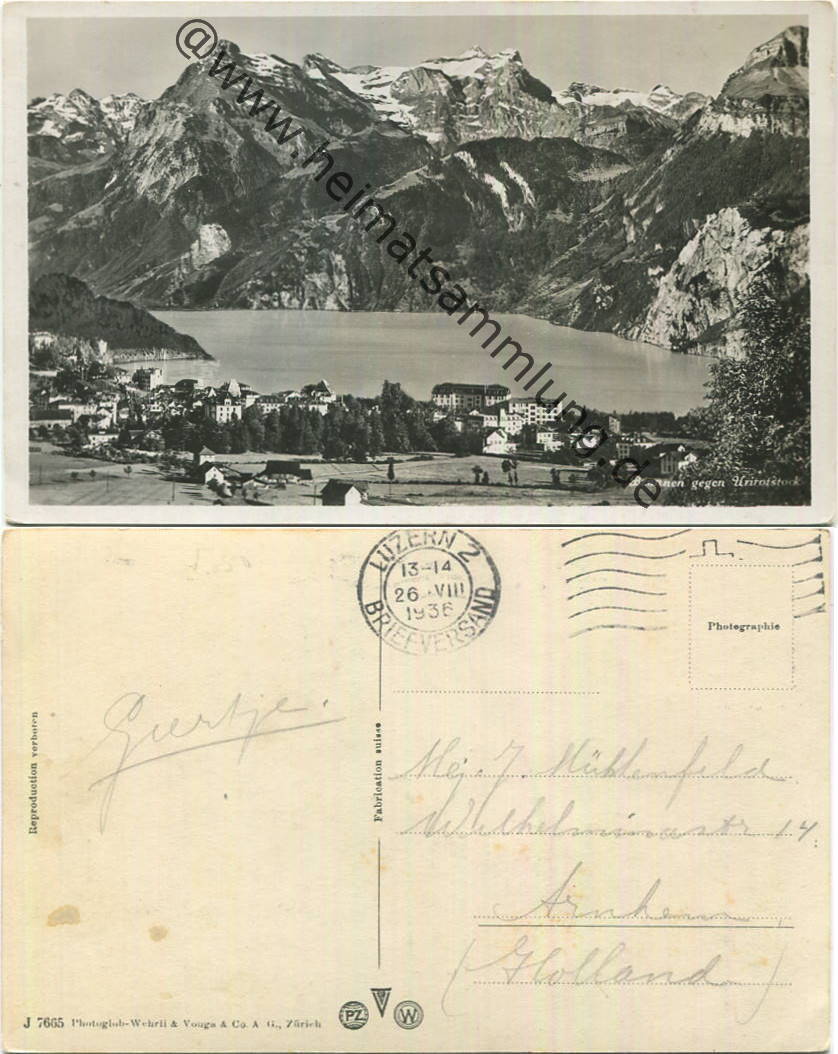 @www.heimatsammlung.de
Brunnen gegen Urirotstock
LUZERN 2
13-14
26.VIII
1936
BRIEFVERSAND
Photographie
Reproduction verboten
Fabrication suisse
Geertje.
Mej. J. Mühlenfeld
Wilhelminastr 14.
Arnhem,
(Holland)
J 7665 Photoglob-Wehrli & Vouga & Co. A. G., Zürich
PZ
W